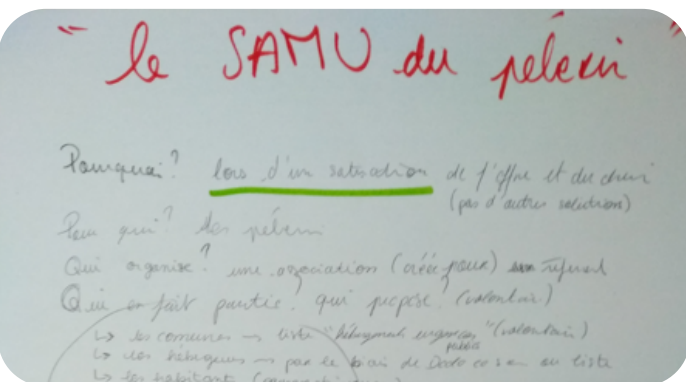 "le SAMU du pélerin"
Pourquoi? lors d'un saturation de l'offre et du
(pas d'autres solution)
Pour qui? les pélerin
Qui organise? une association (créée pour) référent
Qui en fait partie? qui propose? (volontair)
↳ les comunes → liste "hébergement urgences" (volontair)
↳ des → par le biais de ou liste
↳ les habitant